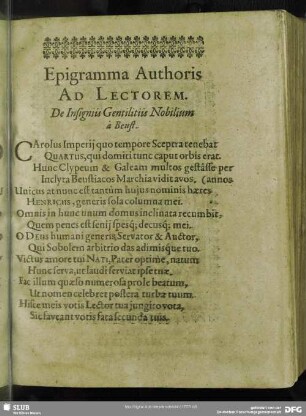 Epigramma Authoris
AD LECTOREM.
De Insigniis Gentilitiis Nobilium
à Beust.
CArolus Imperij quo tempore Sceptra tenebat
QUARTUS, qui domiti tunc caput orbis erat.
Hunc Clypeum & Galeam multos gestâsse per annos
Inclyta Beustiacos Marchia vidit avos.
Unicus at nunc est tantùm hujus nominis hæres
HENRICUS, generis sola columna mei.
Omnis in hunc unum domus inclinata recumbit,
Quem penes est senij spesq; decusq; mei.
O DEUS humani generis, Servator & Auctor,
Qui Sobolem arbitrio das adimisque tuo.
Victus amore tui NATI, Pater optime, natum
Hunc serva, ut laudi serviat ipse tuæ.
Fac illum quæso numerosa prole beatum,
Ut nomen celebret postera turba tuum.
Hisce meis votis Lector tua jungito vota,
Sic faveant votis fata secunda tuis.
SLUB
DFG